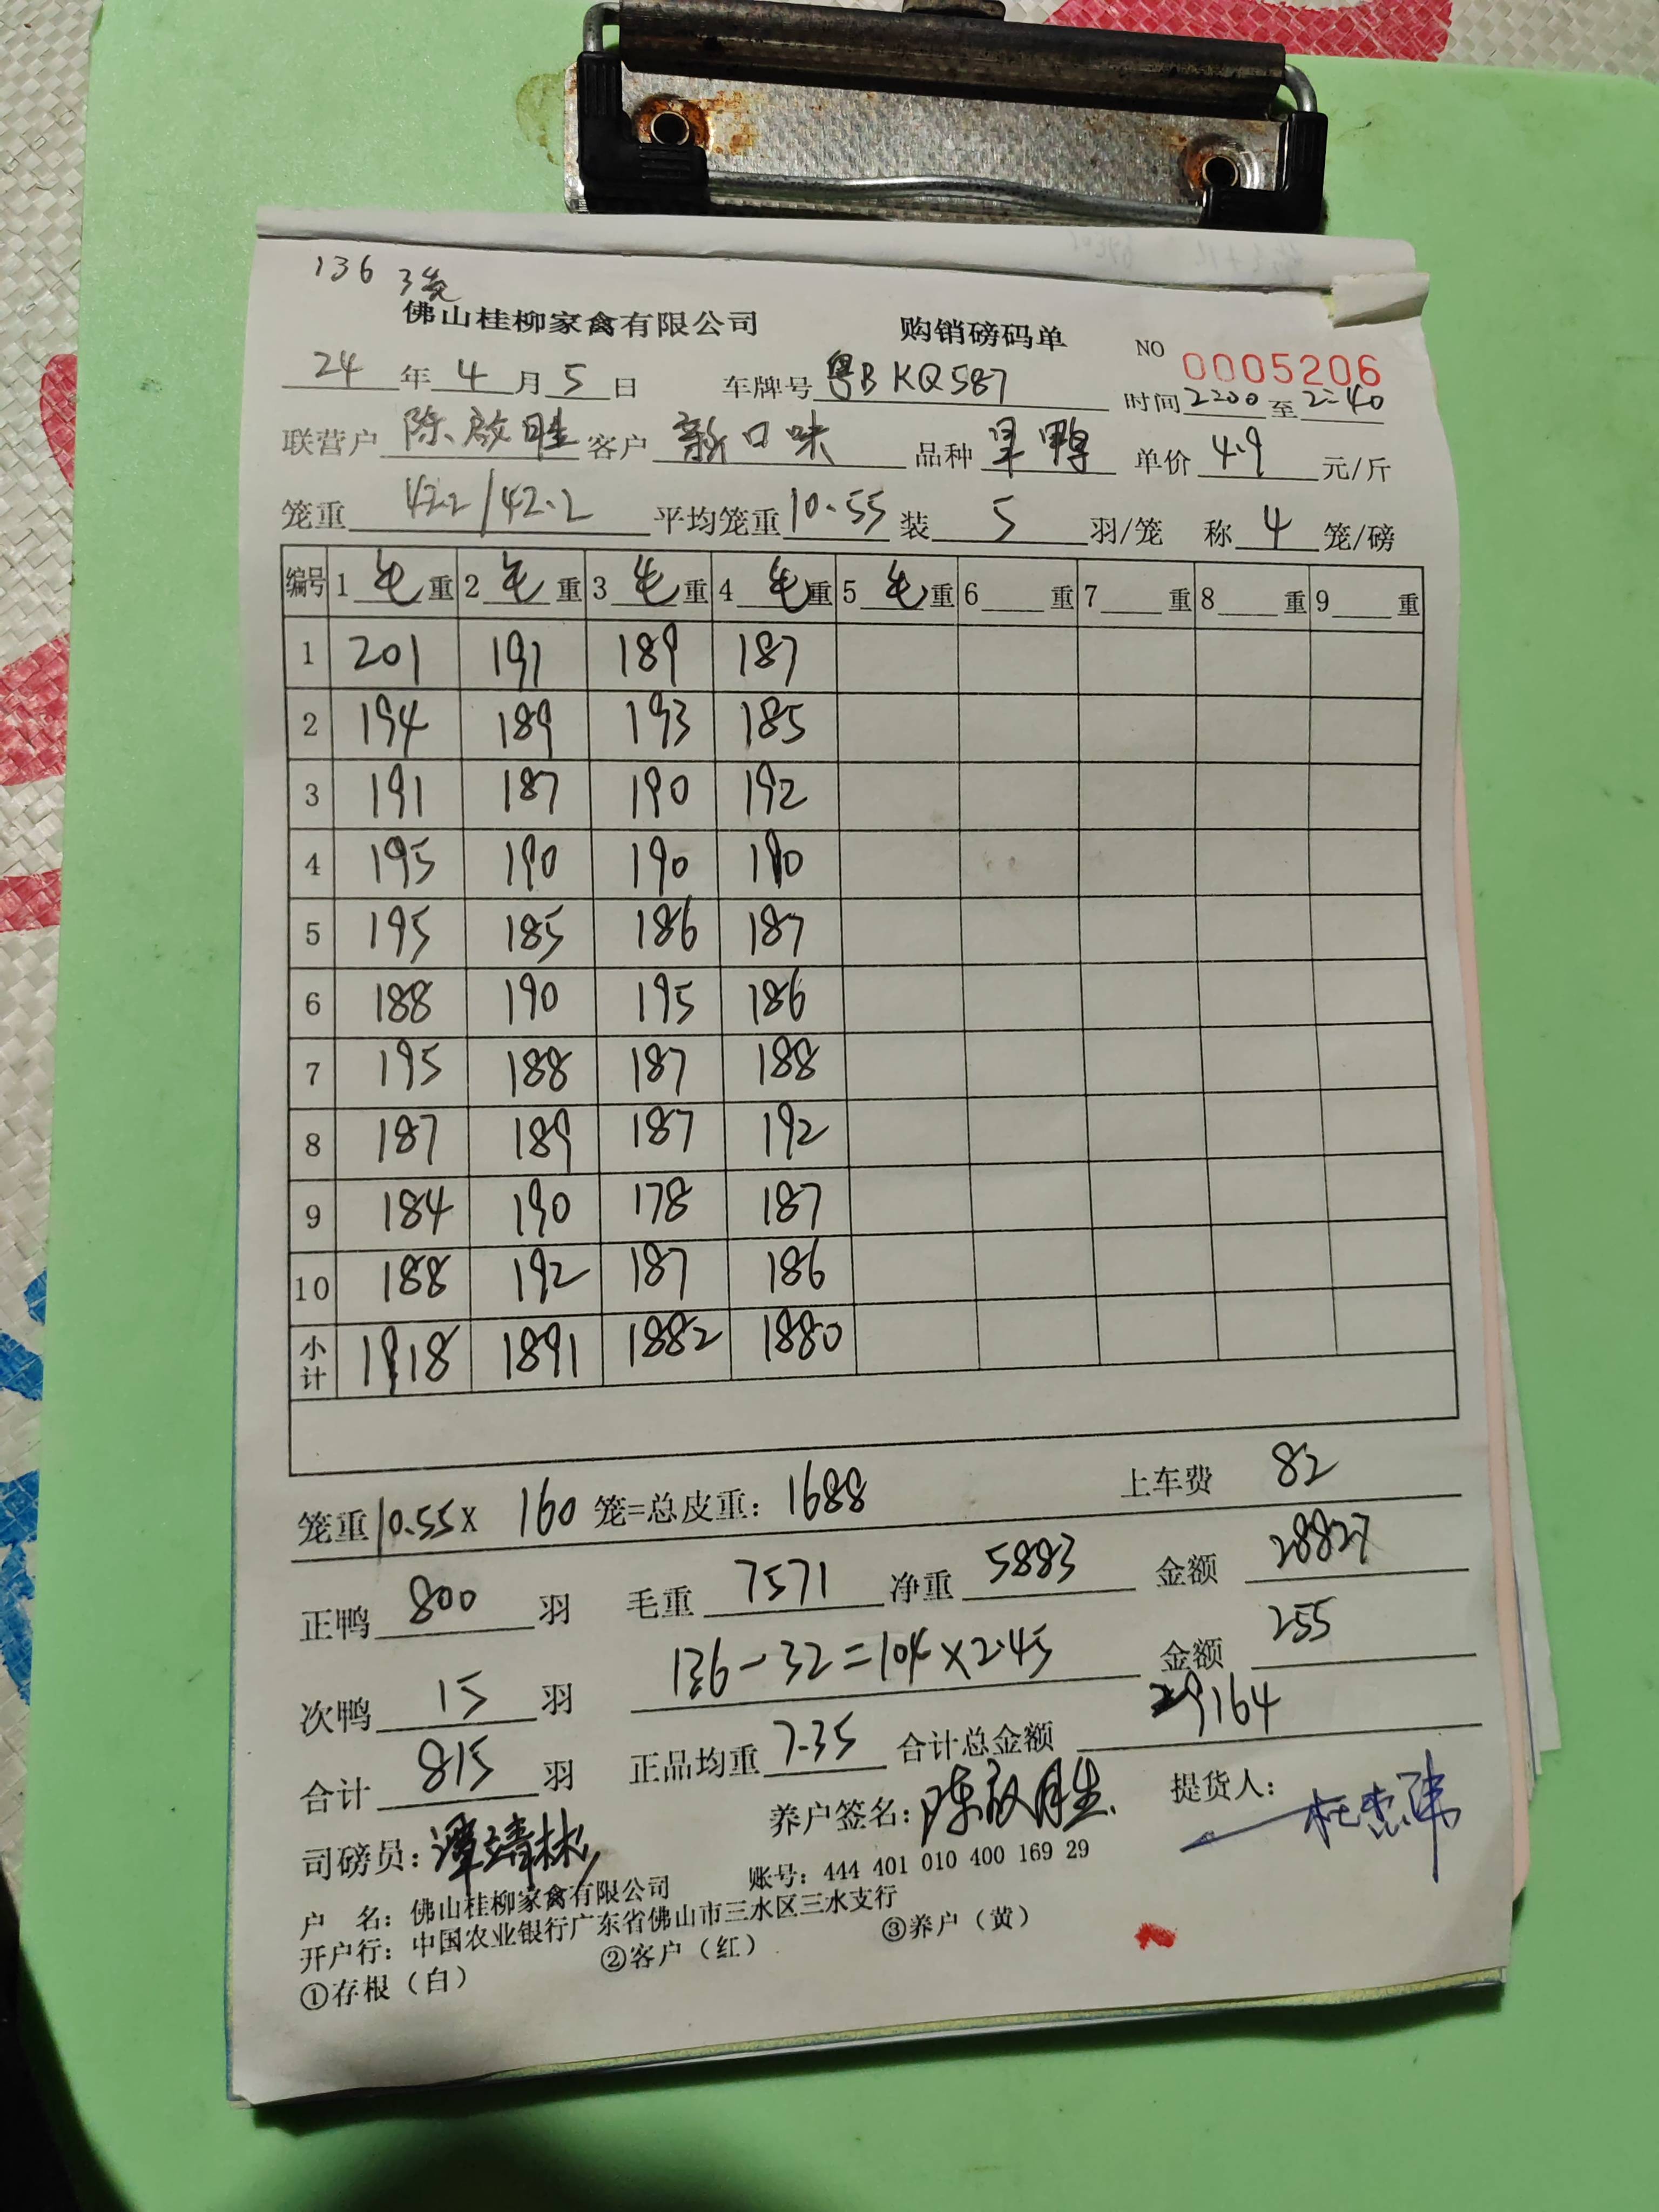 136 3笼
佛山桂柳家禽有限公司 购销磅码单 NO 0005206
24年4月5日 车牌号粤BKQ587 时间2200至2240
联营户 陈啟胜 客户 新口味 品种 旱鸭 单价 4.9 元/斤
笼重 42.2/42.2 平均笼重10.55装 5 羽/笼 称 4 笼/磅
编号 1毛重 2毛重 3毛重 4毛重 5毛重 6重 7重 8重 9重
1 201 191 189 187
2 194 189 193 185
3 191 187 190 192
4 195 190 190 190
5 195 185 186 187
6 188 190 195 186
7 195 188 187 188
8 187 189 187 192
9 184 190 178 187
10 188 192 187 186
小计 1918 1891 1882 1880
笼重10.55X 160 笼=总皮重: 1688 上车费 82
正鸭 800 羽 毛重 7571 净重 5883 金额 28827
次鸭 15 羽 136-32=104×2.45 金额 255
合计 815 羽 正品均重 7.35 合计总金额 29164
司磅员: 谭靖林 养户签名: 陈啟胜 提货人:
户 名: 佛山桂柳家禽有限公司 账号: 444 401 010 400 169 29
开户行: 中国农业银行广东省佛山市三水区三水支行
①存根(白) ②客户(红) ③养户(黄)